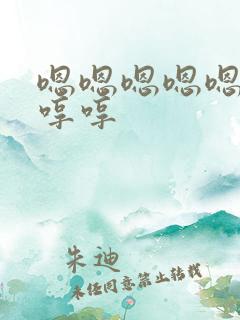 嗯嗯嗯嗯嗯
哼哼
朱迪
未经同意禁止转载